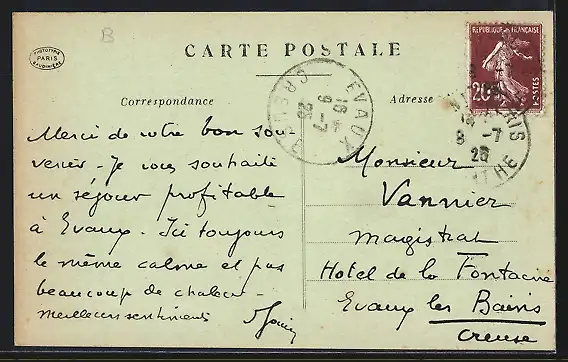 B
CARTE POSTALE
PHOTOTYPIE
PARIS
BAUDINIÈRE
RÉPUBLIQUE FRANÇAISE
20c
POSTES
EVAUX
16
9-7
26
CREUSE
8 -7
26
Correspondance
Adresse
Merci de votre bon sou-
venir - Je vous souhaite
un séjour profitable
à Evaux. Ici toujours
le même calme et pas
beaucoup de chaleur -
meilleurs sentiments
Monsieur
Vannier
Magistrat
Hotel de la Fontaine
Evaux les Bains
Creuse